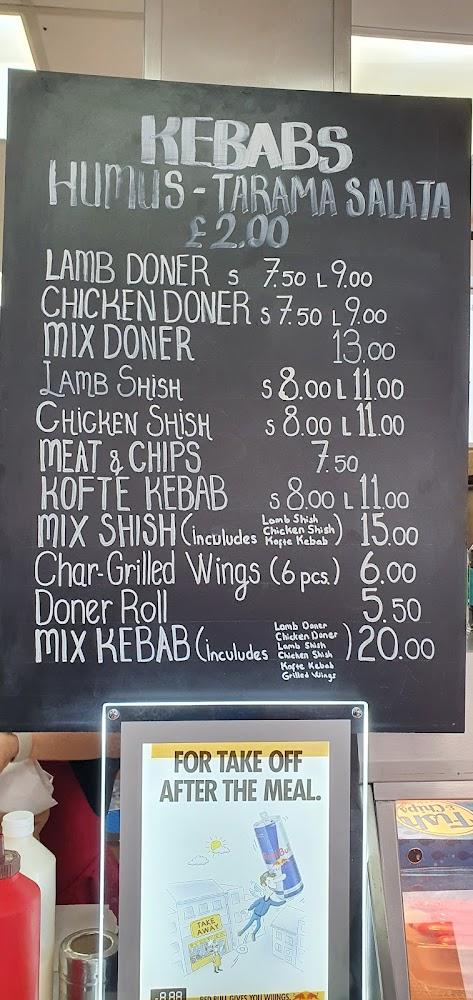 KEBABS
HUMUS - TARAMA SALATA
£2.00
LAMB DONER S 7.50 L 9.00
CHICKEN DONER S 7.50 L 9.00
MIX DONER 13.00
LAMB SHISH S 8.00 L 11.00
CHICKEN SHISH S 8.00 L 11.00
MEAT & CHIPS 7.50
KOFTE KEBAB S 8.00 L 11.00
MIX SHISH (inculudes Lamb Shish Chicken Shish Kofte Kebab) 15.00
Char-Grilled Wings (6 pcs.) 6.00
Doner Roll 5.50
MIX KEBAB (inculudes Lamb Doner Chicken Doner Lamb Shish Chicken Shish Kofte Kebab Grilled Wings) 20.00
FOR TAKE OFF
AFTER THE MEAL.
Red Bull
TAKE
AWAY
RED BULL GIVES YOU WIIINGS.
Fish
& Chips